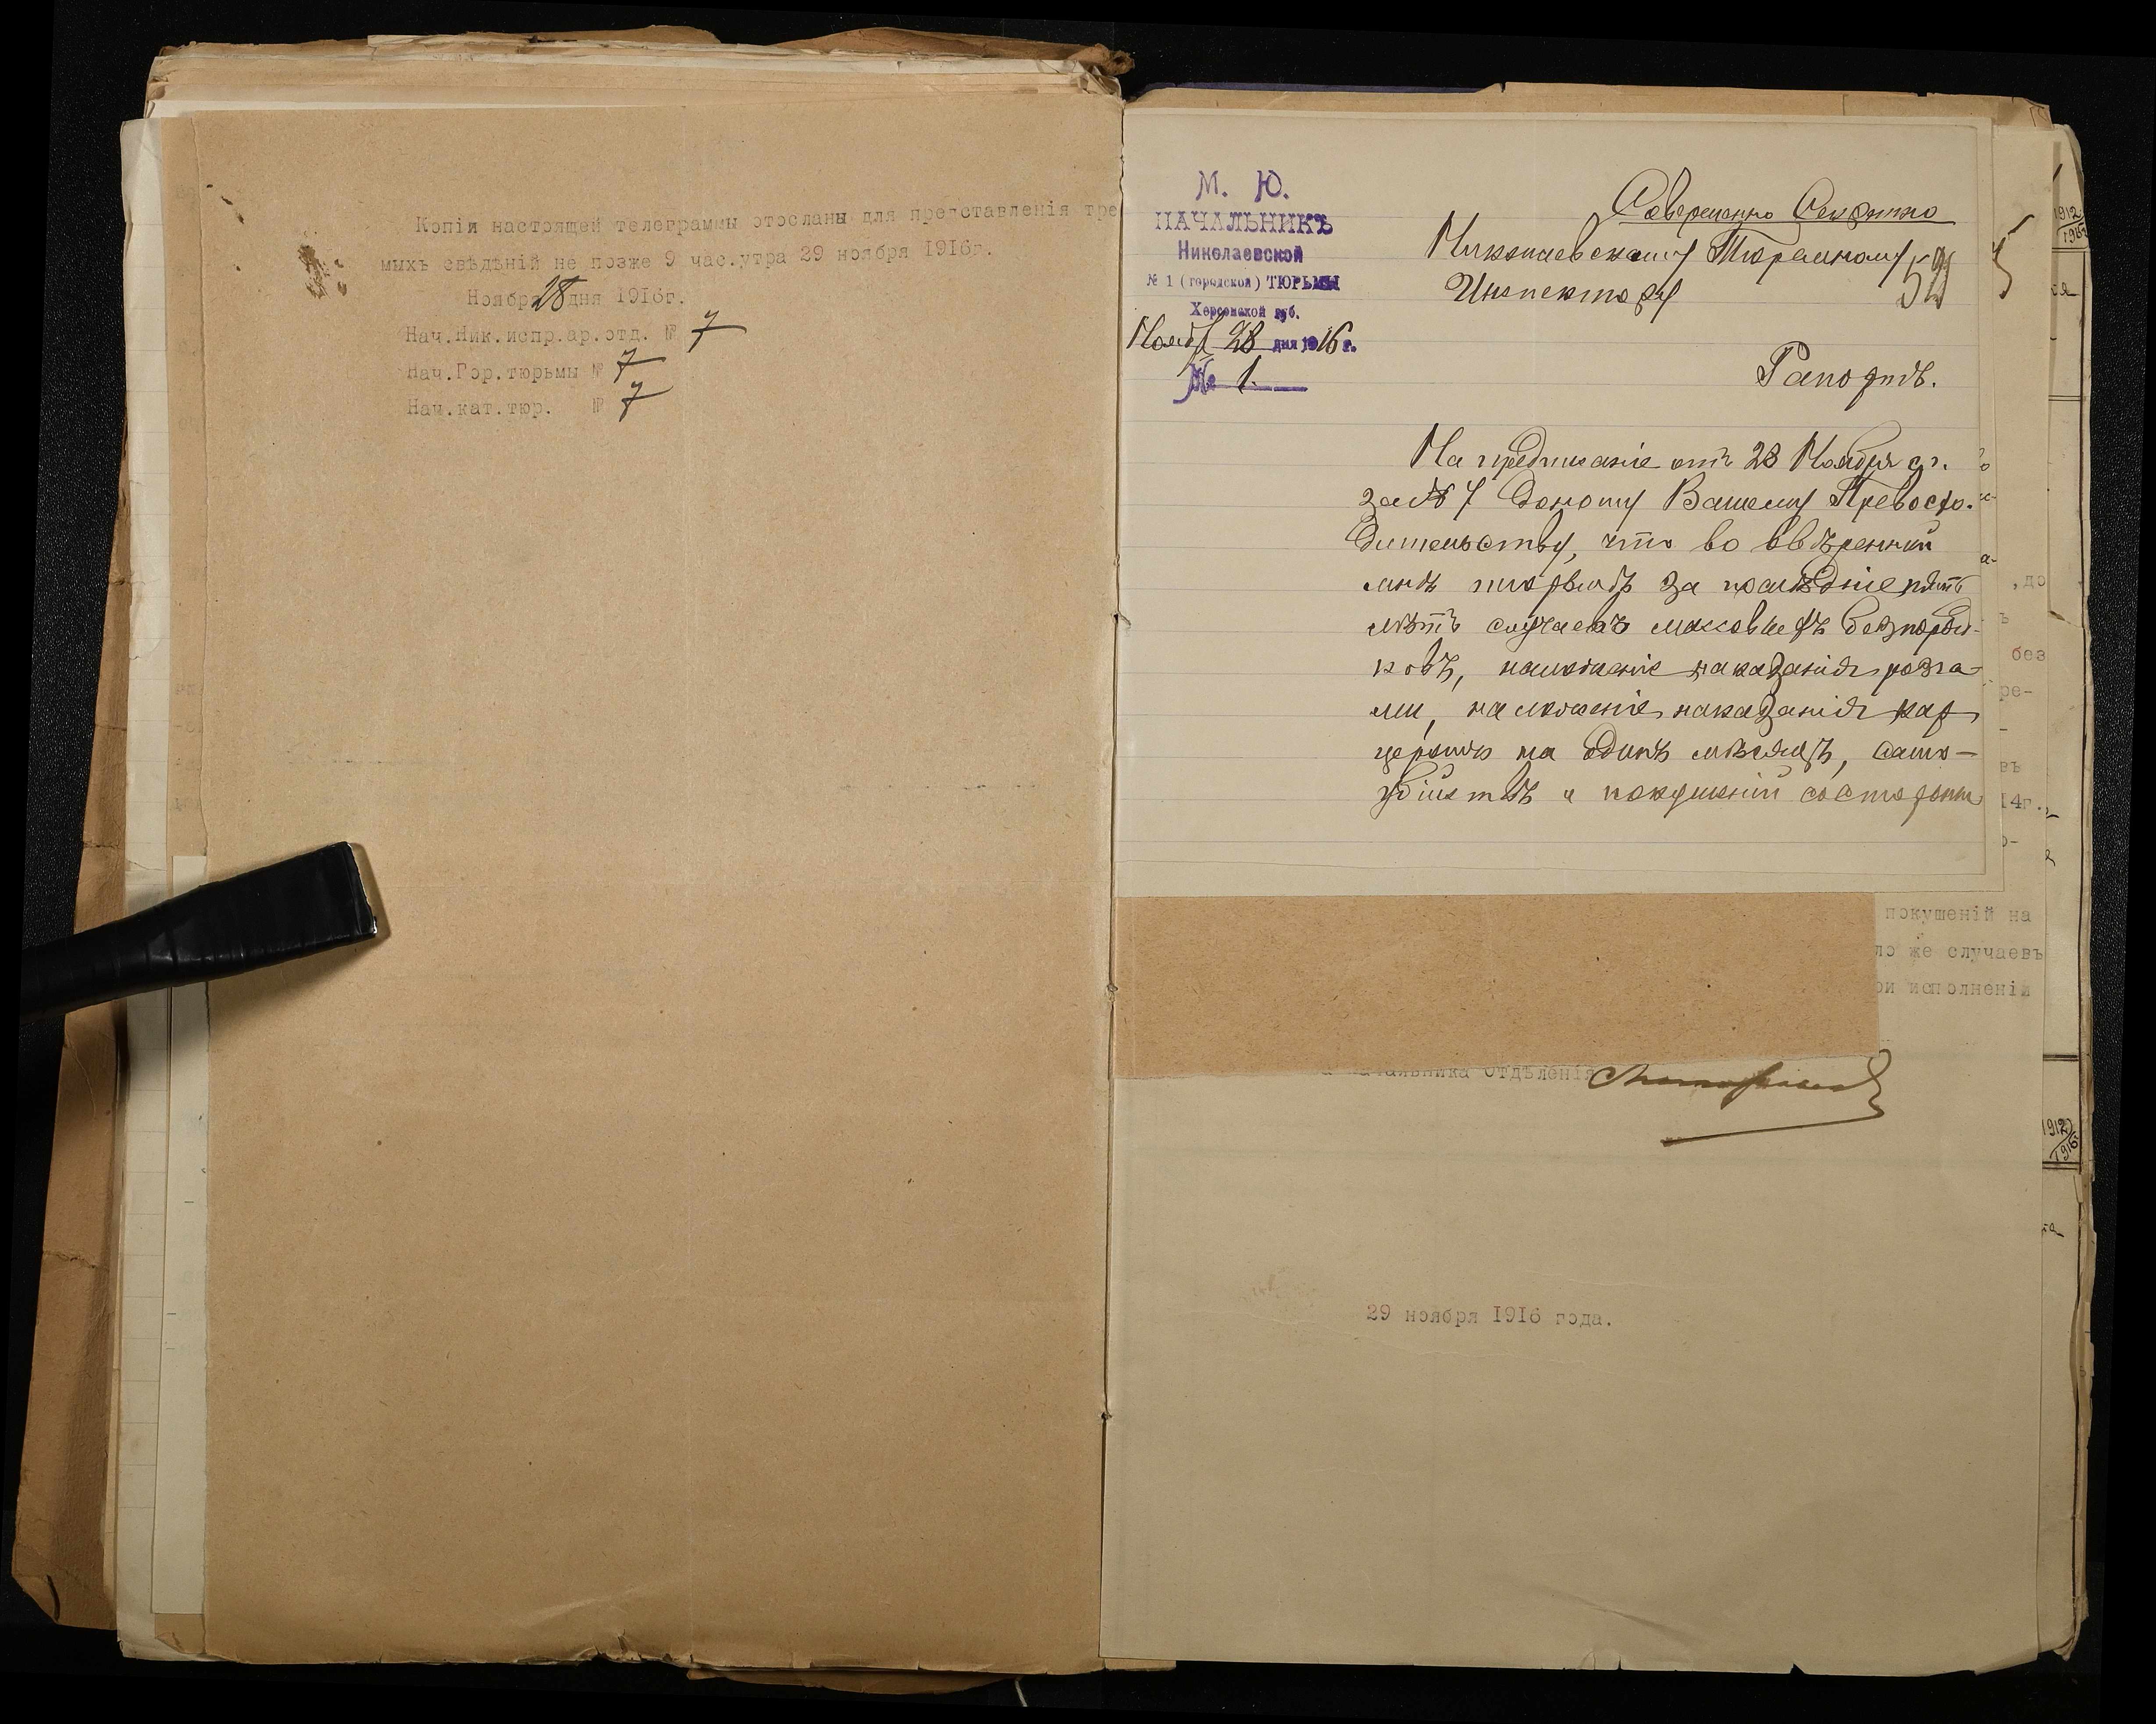 Копіи настоящей телеграммы отосланы для представленія тре
мыхъ свѣдѣній не позже 9 час.утра 29 ноября 1916г.
Ноября 28 дня 1916г.
Нач.Ник.испр.ар.отд. № 7
Нач.Гор.тюрьмы № 7
Нач.кат.тюр. № 7
М. Ю.
НАЧАЛЬНИКЪ
Николаевской
№ 1 (городской) ТЮРЬМЫ
Херсонской губ.
Ноября 28 дня 1916 г.
№ 1.
Совершенно Секретно
Николаевскому Тюремному
Инспектору
59
Рапортъ.
На предписаніе отъ 28 Ноября с.г.
за № 7 доношу Вашему Превосхо-
дительству, что во ввѣренной
мнѣ тюрьмѣ за послѣдніе пять
лѣтъ случаевъ массовыхъ безпоряд-
ковъ, наложеніе наказанія розга-
ми, наложеніе наказанія кар
церомъ на одинъ мѣсяцъ, само-
убійствъ и покушеній со стороны
, до
без
ре-
въ
14г.
покушеній на
ло же случаевъ
ри исполненіи
начальника Отдѣленія
29 ноября 1916 года.
1912
1916
1912
1916